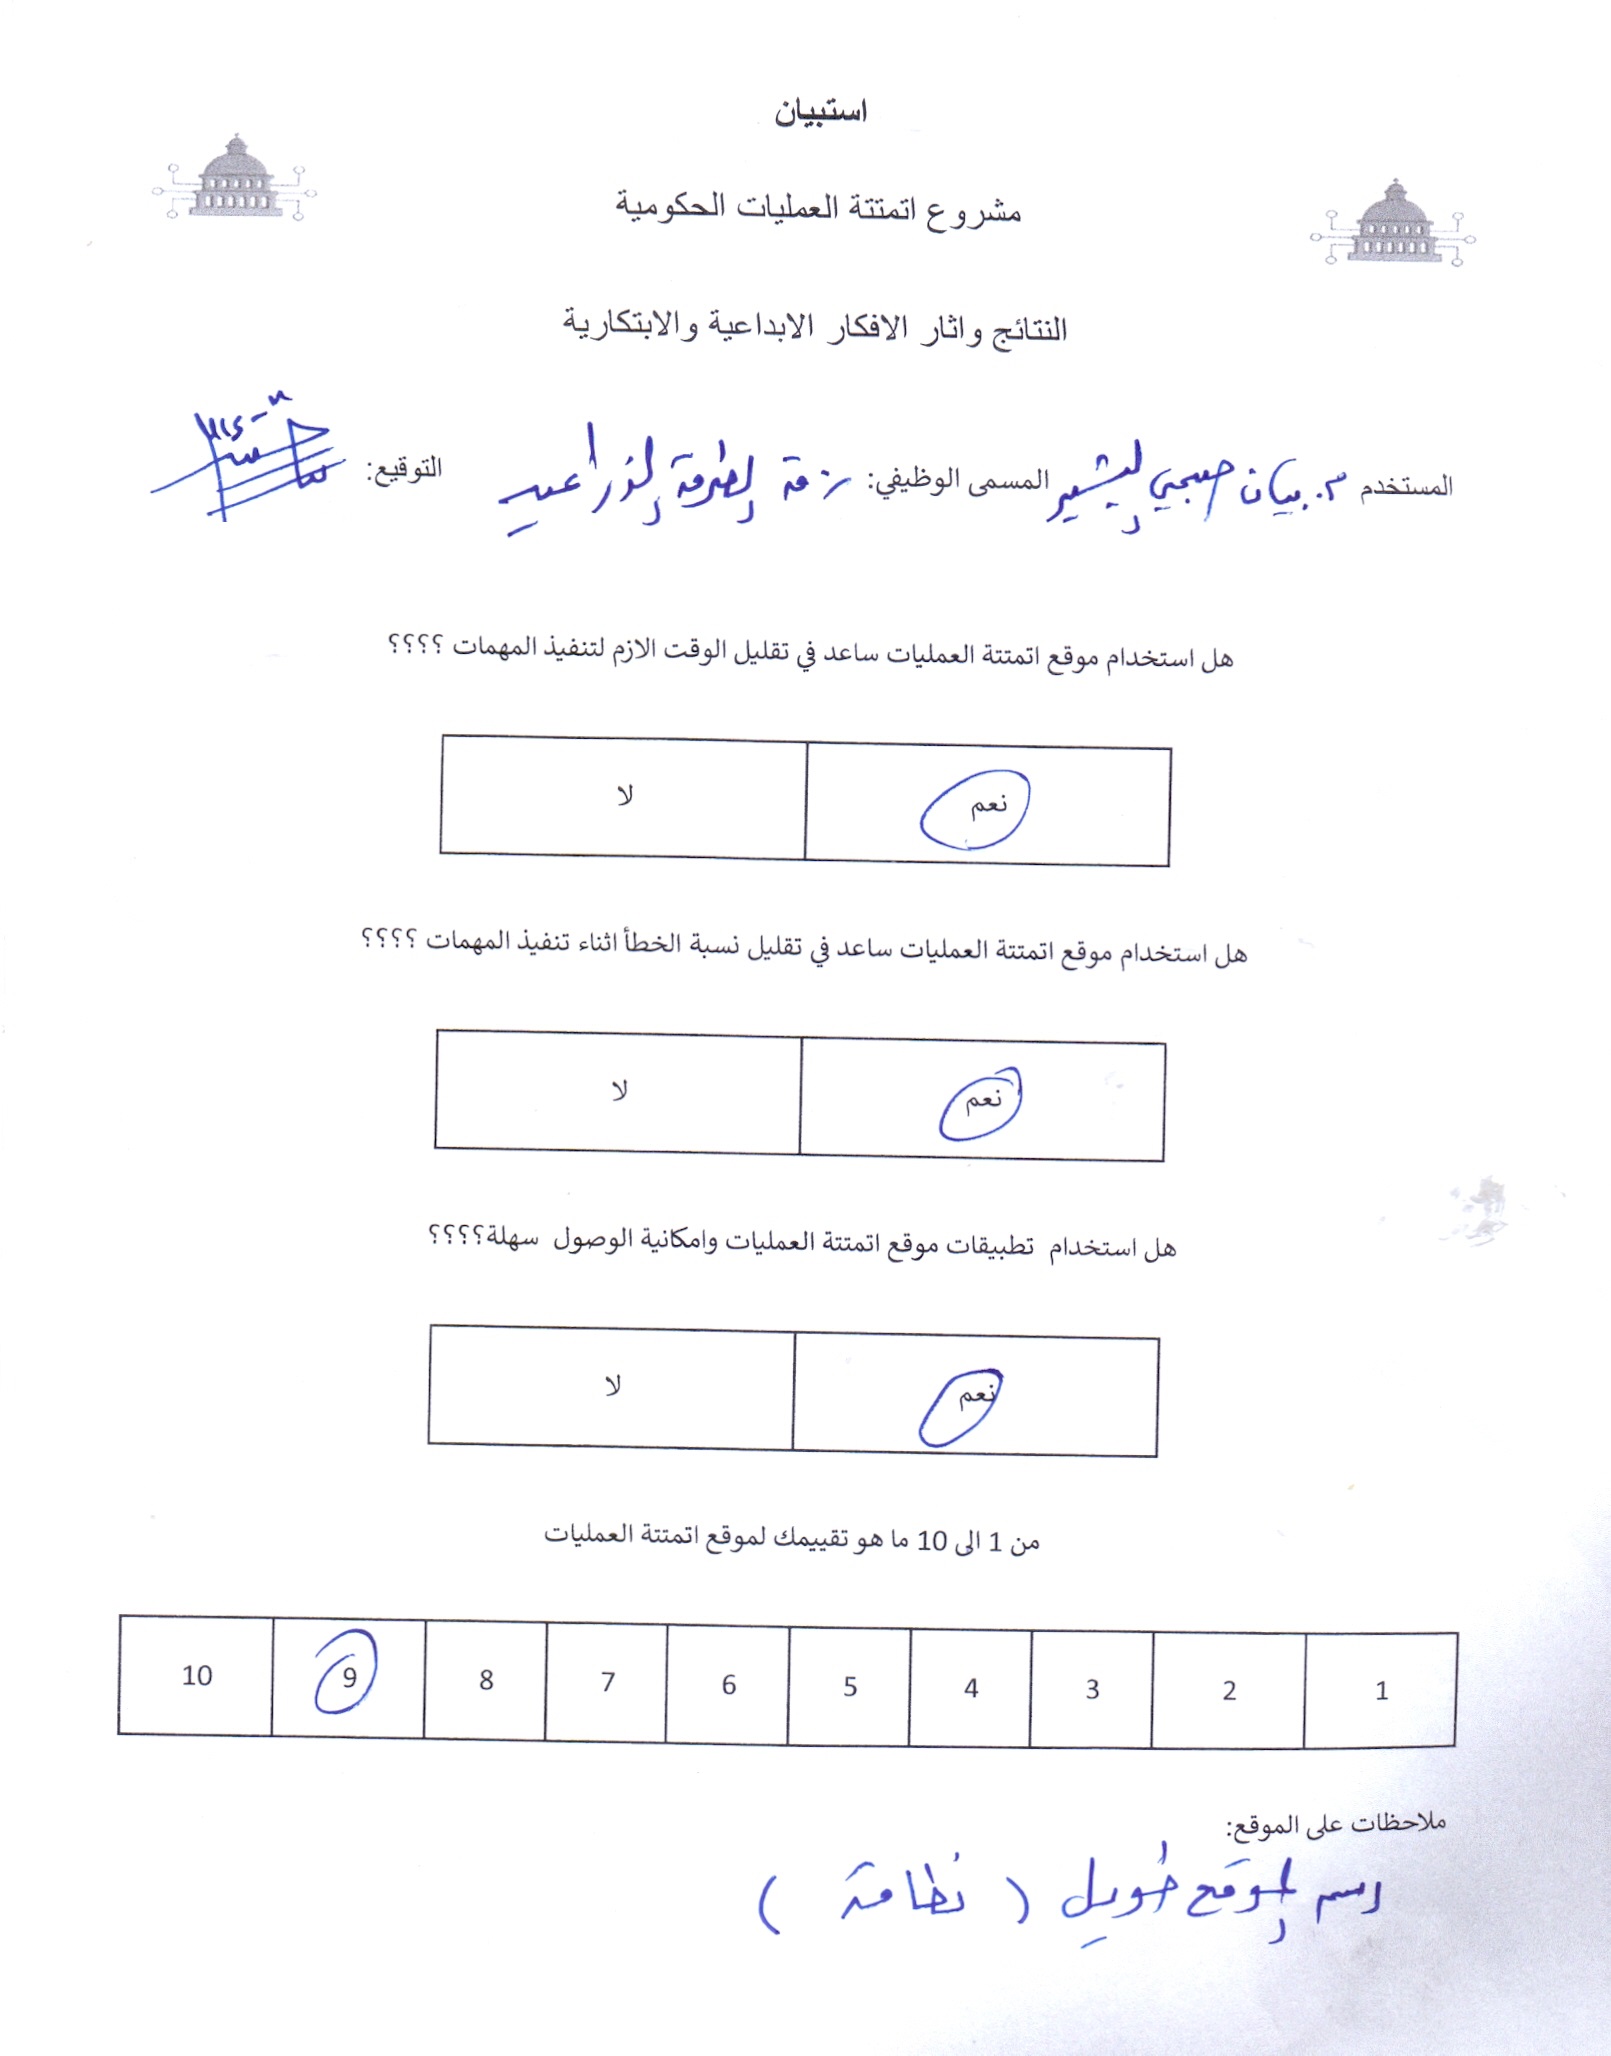 استبيان
مشروع اتمتتة العمليات الحكومية
النتائج واثار الافكار الابداعية والابتكارية
المستخدم م. بيان صبحي البشير المسمى الوظيفي: الطرق الزراعية التوقيع:
هل استخدام موقع اتمتتة العمليات ساعد في تقليل الوقت الازم لتنفيذ المهمات ؟؟؟؟
نعم لا
هل استخدام موقع اتمتتة العمليات ساعد في تقليل نسبة الخطأ اثناء تنفيذ المهمات ؟؟؟؟
نعم لا
هل استخدام تطبيقات موقع اتمتتة العمليات وامكانية الوصول سهلة؟؟؟؟
نعم لا
من 1 الى 10 ما هو تقييمك لموقع اتمتتة العمليات
1 2 3 4 5 6 7 8 9 10
ملاحظات على الموقع:
الموقع طويل ( )